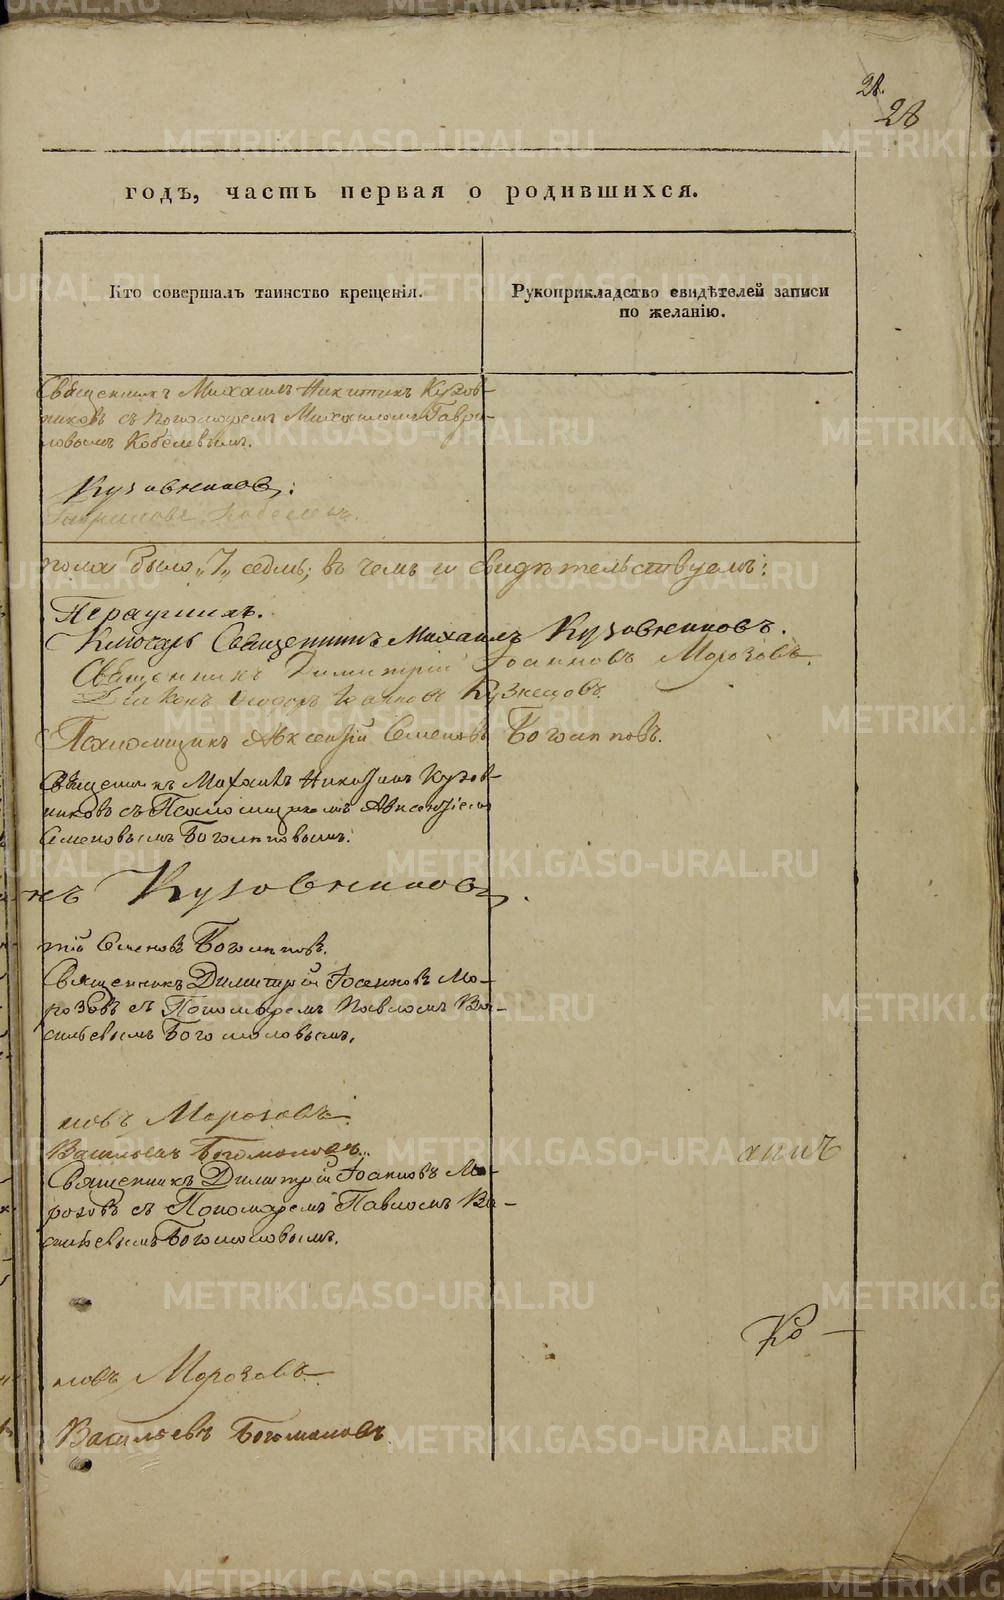 28.
28
годъ, часть первая о родившихся.
Кто совершалъ таинство крещенія.
Рукоприкладство свидѣтелей записи
по желанію.
Священникъ Михаилъ Никитинъ Кузов-
никовъ съ Пономаремъ Михаиломъ Гаври-
ловымъ Кобелевымъ.
Кузовниковъ.
Гавриловъ Кобелевъ.
пола было „7„ седмь; въ чемъ и свидѣтельствуемъ:
Ключарь Священникъ Михаилъ Кузовниковъ.
Священникъ Димитрій Іоанновъ Морозовъ.
Діаконъ Ѳеодоръ Іоанновъ Кузнецовъ.
Псаломщикъ Авксентій Семеновъ Боголѣповъ.
Священникъ Михаилъ Никитинъ Кузов-
никовъ съ Псаломщикомъ Авксентіемъ
Семеновымъ Боголѣповымъ.
нъ Кузовниковъ.
тій Семеновъ Боголѣповъ.
Священникъ Димитрій Іоанновъ Мо-
розовъ съ Пономаремъ Павломъ Ва-
сильевымъ Богомоловымъ.
новъ Морозовъ.
Васильевъ Богомоловъ.
Священникъ Димитрій Іоанновъ Мо-
розовъ съ Пономаремъ Павломъ Ва-
сильевымъ Богомоловымъ.
Ко-
новъ Морозовъ.
Васильевъ Богомоловъ
METRIKI.GASO-URAL.RU